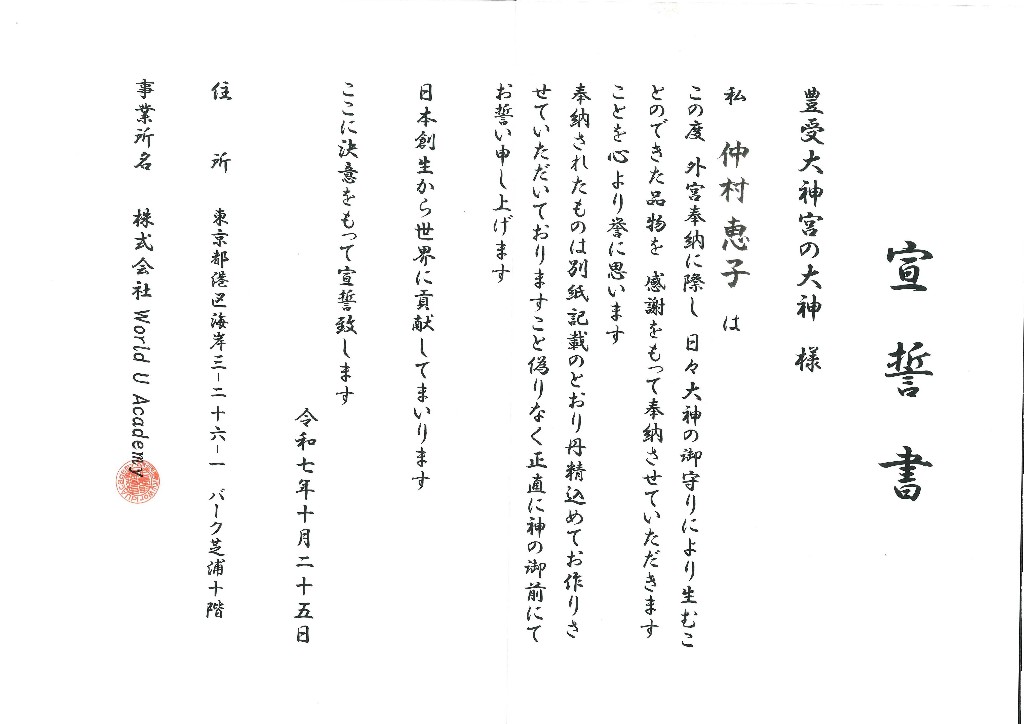 宣誓書
豊受大神宮の大神 様
私 仲村恵子 は
この度 外宮奉納に際し 日々大神の御守りにより生むこ
とのできた品物を 感謝をもって奉納させていただきます
ことを心より誉に思います
奉納されたものは別紙記載のとおり丹精込めてお作りさ
せていただいておりますこと偽りなく正直に神の御前にて
お誓い申し上げます
日本創生から世界に貢献してまいります
ここに決意をもって宣誓致します
令和七年十月二十五日
住 所 東京都港区海岸三-二十六-一 パーク芝浦十階
事業所名 株式会社 World U Academy